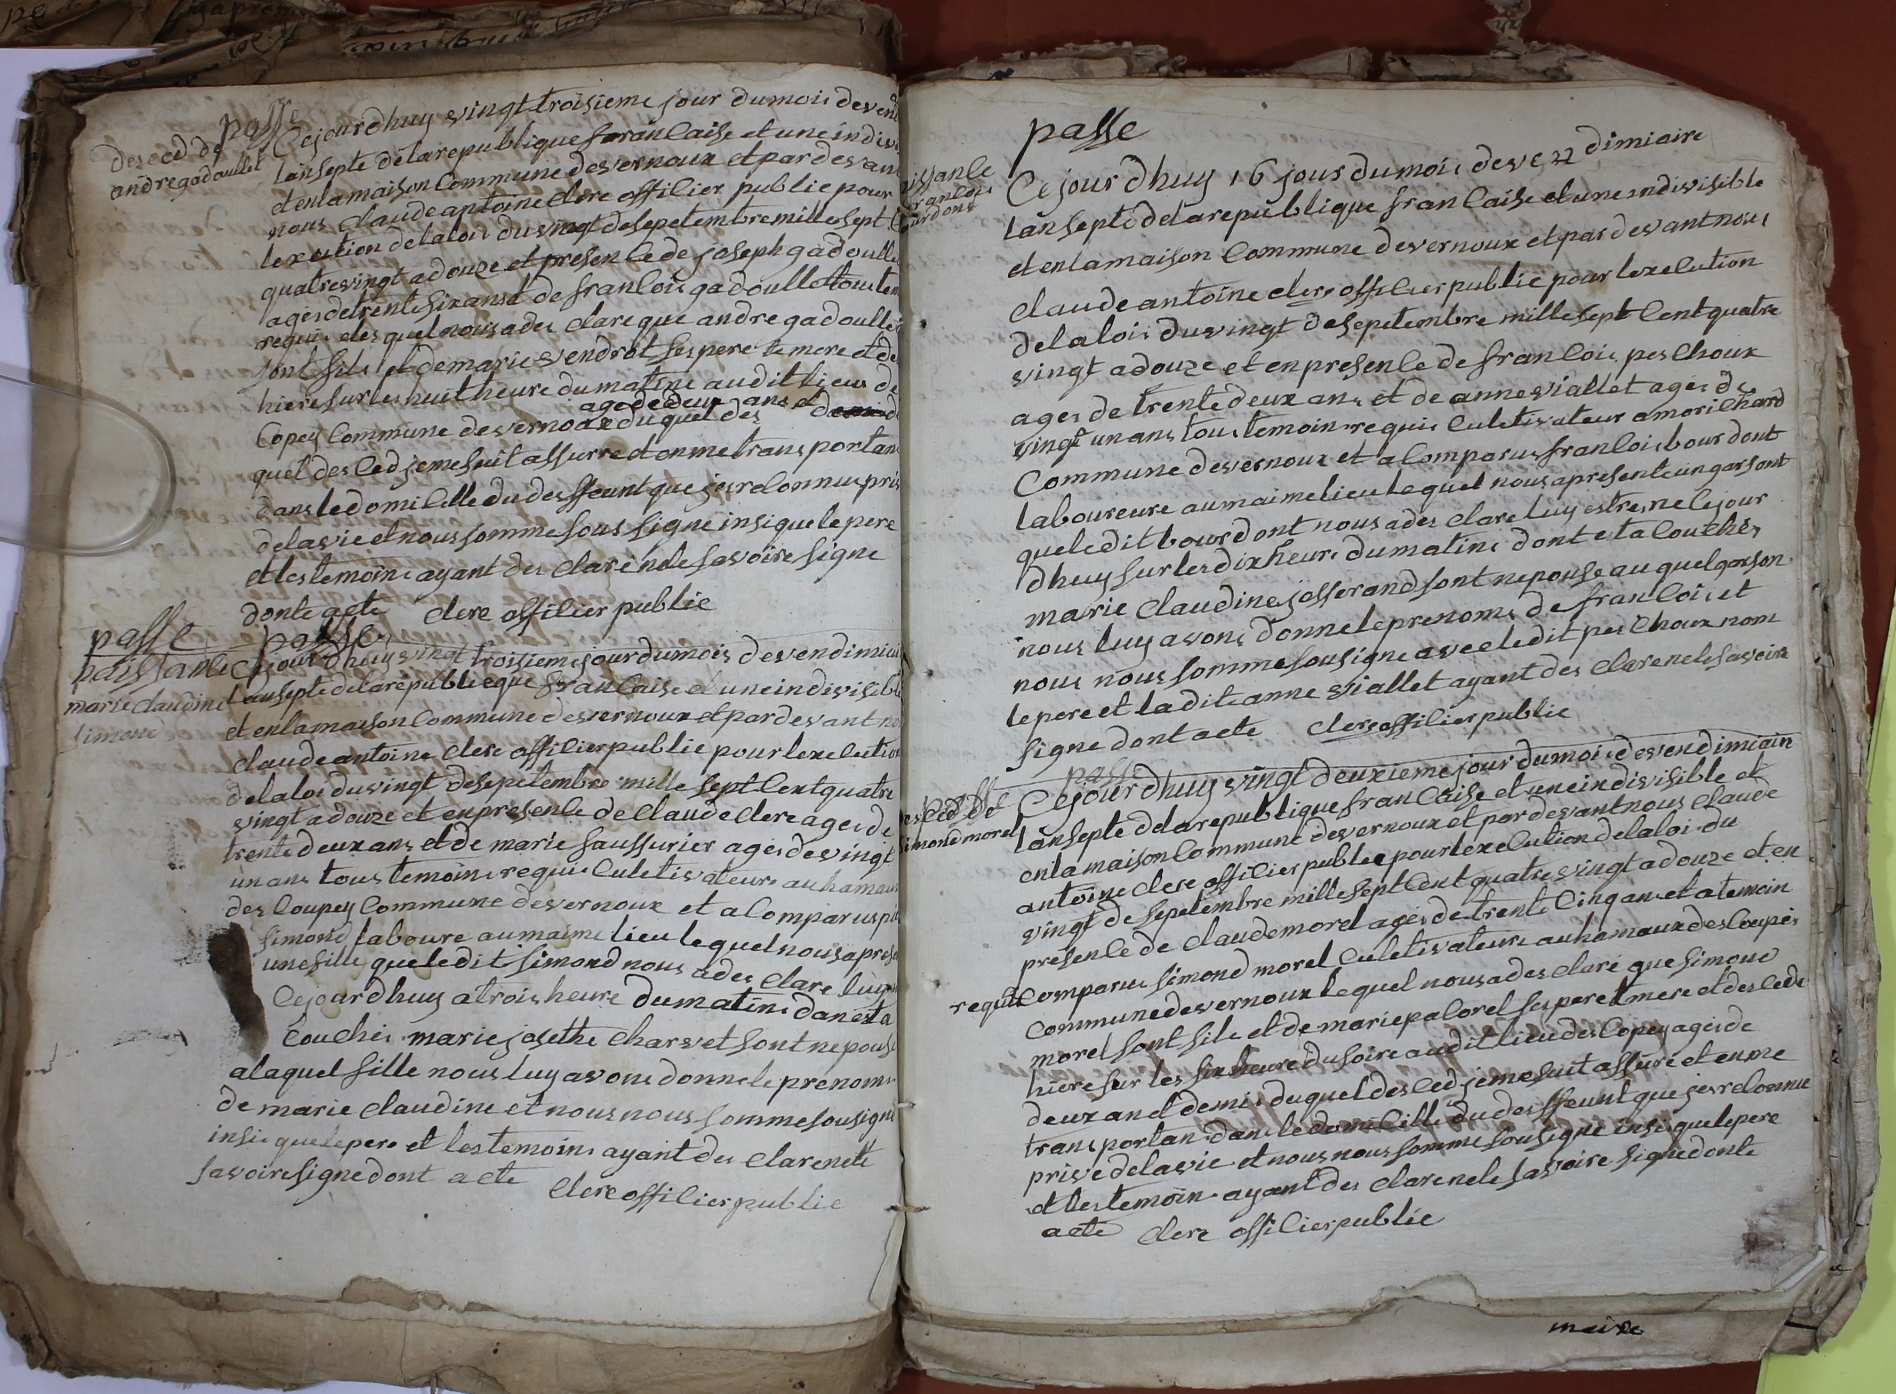 passe
desced de
andre gadoullet
Cejourdhuy vingt troisieme jour dumois deven
lansepte delarepublique franCaise et une indivi
etenlamaison Commune devernoux et pardevan
nous Claude antoine Clere offilier publie pour
lexution delaloi duvingt desepetembre mille sept C
quatrevingt adouze et presenCede joseph gadoulle
ages detrente six anset de franCois gadoullet tous tem
requis lesquel nous ades Clare que andre gadoullet
sont fils et demarie vendrot ses pere te mere et de
hiere surles huit heure dumatine audit lieux de
agededeux ans et
Copey Commune devernoux duquel des
quel desCed jeme suit assurre et onme transportan
dansledomiCille du deffeunt que jes reConnus priv
delavie et nous somme sous signe insique le pere
et les temoin ayant des Clare nele savoire signe
donte acte Clere offiCier publie
passe passe
naissanCe
marie Claudine
simond
Cejour dhuy vingt troisieme jour dumois devendimiai
lansepte delarepublieque franCaise et uneindivisible
et enlamaison Commune devernoux et pardevant no
Claude antoine Clere offiCier publie pour lexeCution
delaloi duvingt desepetembre mille sept Cent quatre
vingt adouze et en presenCe deClaude Clere ages de
trente deux ans et de marie saussurier ages de vingt
un ans tous temoin requis Culetivateur au hamaux
des Coupey Commune devernoux et aComparus pi
simond laboure aumaime lieu lequel nous aprese
une fille que ledit simond nous ades Clare luy
Cejourdhuy atrois heure dumatin dan est a
Couches marie josethe Charvet sont nepouse
alaquel fille nous luy avons donne leprenom
de marie Claudine et nous nous somme sousigne
insi que lepere et les temoin ayant des Clare nele
savoire signe dont acte Clere offiCier publie
passe
naissanCe
franCois
bourdont
Cejour dhuy 16 jour dumois devendimiaire
lansepte delarepublique franCaise et une indivisible
et enlamaison Commune devernoux et par devant nous
Claude antoine Clere offiCier publie pour lexeCution
delaloi duvingt desepetembre mille sept Cent quatre
vingt adouze et en presenCe de franCois pesChoux
ages de trente deux ans et de anne viallet ages de
vingt un ans tous temoin requis Culetivateur amoriChard
Commune devernoux et aComparus franCois bourdont
laboureure au maime lieu lequel nous apresente un garsont
que ledit bourdont nous ades Clare luy estre ne Cejour
dhuy surles dix heure dumatine dont eta Couches
marie Claudine josserand sont nepouse auquel garson
nous luy avons donne leprenom de franCois et
nous nous somme sousigne avec ledit pesChoux nom
lepere et ladite anne viallet ayant des Clare nele savoire
signe dont acte Clere offiCier publie
passe
desCed de
simond morel
Cejour dhuy vingt deuxieme jour dumois devendimiain
lansepte delarepublique franCaise et une indivisible et
enlamaison Commune devernoux et pardevant nous Claude
antoine Clere offiCier publie pour lexeCution delaloi du
vingt de sepetembre mille sept Cent quatre vingt adouze et en
presenCe de Claude morel ages de trente Cinq an et atemoin
requis Comparus simond morel Culetivateur auhamaux des Coupés
Commune devernoux lequel nous ades Clare que simond
morel sont fils et de marie palorel ses pere et mere et des Cede
hiere sur les six heure du soire audit lieu des Copey ages de
deux an et demi duquel desCed jeme suit assure et enme
transportan dans ledomiCille du deffeunt que jes reConnue
prive delavie et nous nous somme sousigne insi que lepere
et les temoin ayant des Clare nele savoire signe donte
acte Clere offiCier publie
maire